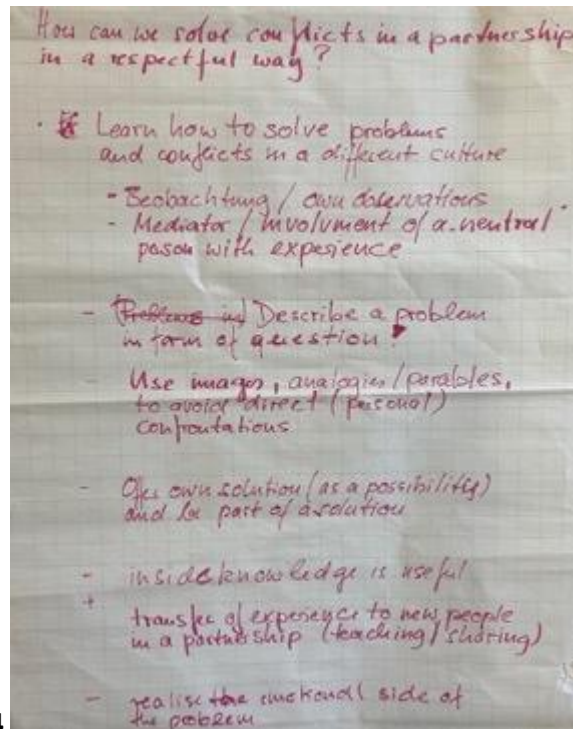 How can we solve conflicts in a partnership
in a respectful way?
· Learn how to solve problems
and conflicts in a different culture
- Beobachtung / own observations
- Mediator / involvment of a "neutral"
person with experience
- Describe a problem
in form of question?
- Use images, analogies / parables,
to avoid direct (personal)
confrontations
- Offer own solution (as a possibility)
and be part of a solution
- inside knowledge is useful
+
transfer of experience to new people
in a partnership (teaching / sharing)
- realise the emotional side of
the problem